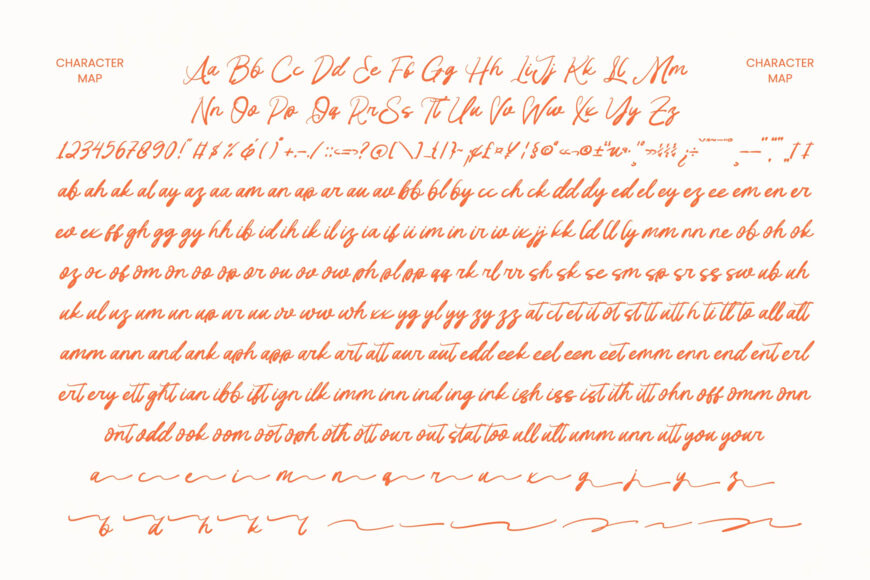 CHARACTER MAP
Aa Bb Cc Dd Ee Ff Gg Hh Ii Jj Kk Ll Mm
CHARACTER MAP
Nn Oo Pp Qq Rr Ss Tt Uu Vv Ww Xx Yy Zz
1234567890!"#$%&'()*+,-./:;<=>?@[\]_{|}~
ab ah ak al ay az aa am an ap ar au av bb bl by cc ch ck dd dy ed el ey ez ee em en er
ev ex ff gh gg gy hh ib id ih ik il iz ia if ii im in ir iv ix jj kk ld ll ly mm nn ne ob oh ok
oz oc of om on oo op or ou ov ow ph pl pp qq rk rl rr sh sk se sm sp sr ss sw ub uh
uk ul uz um un up ur uu vv ww wh xx yg yl yy zy zz at ct et it ot st tt utt h ti tl to all att
amm ann and ank aph app ark art att aur aut edd eek eel een eet emm enn end ent erl
ert ery ett ght ian ibb ift ign ilk imm inn ind ing ink ish iss ist ith itt ohn off omm onn
ont odd ook oom oot oph oth ott our out stat too ull ult umm unn utt you your
a c e i m n q r u x g j y z
b d h k l